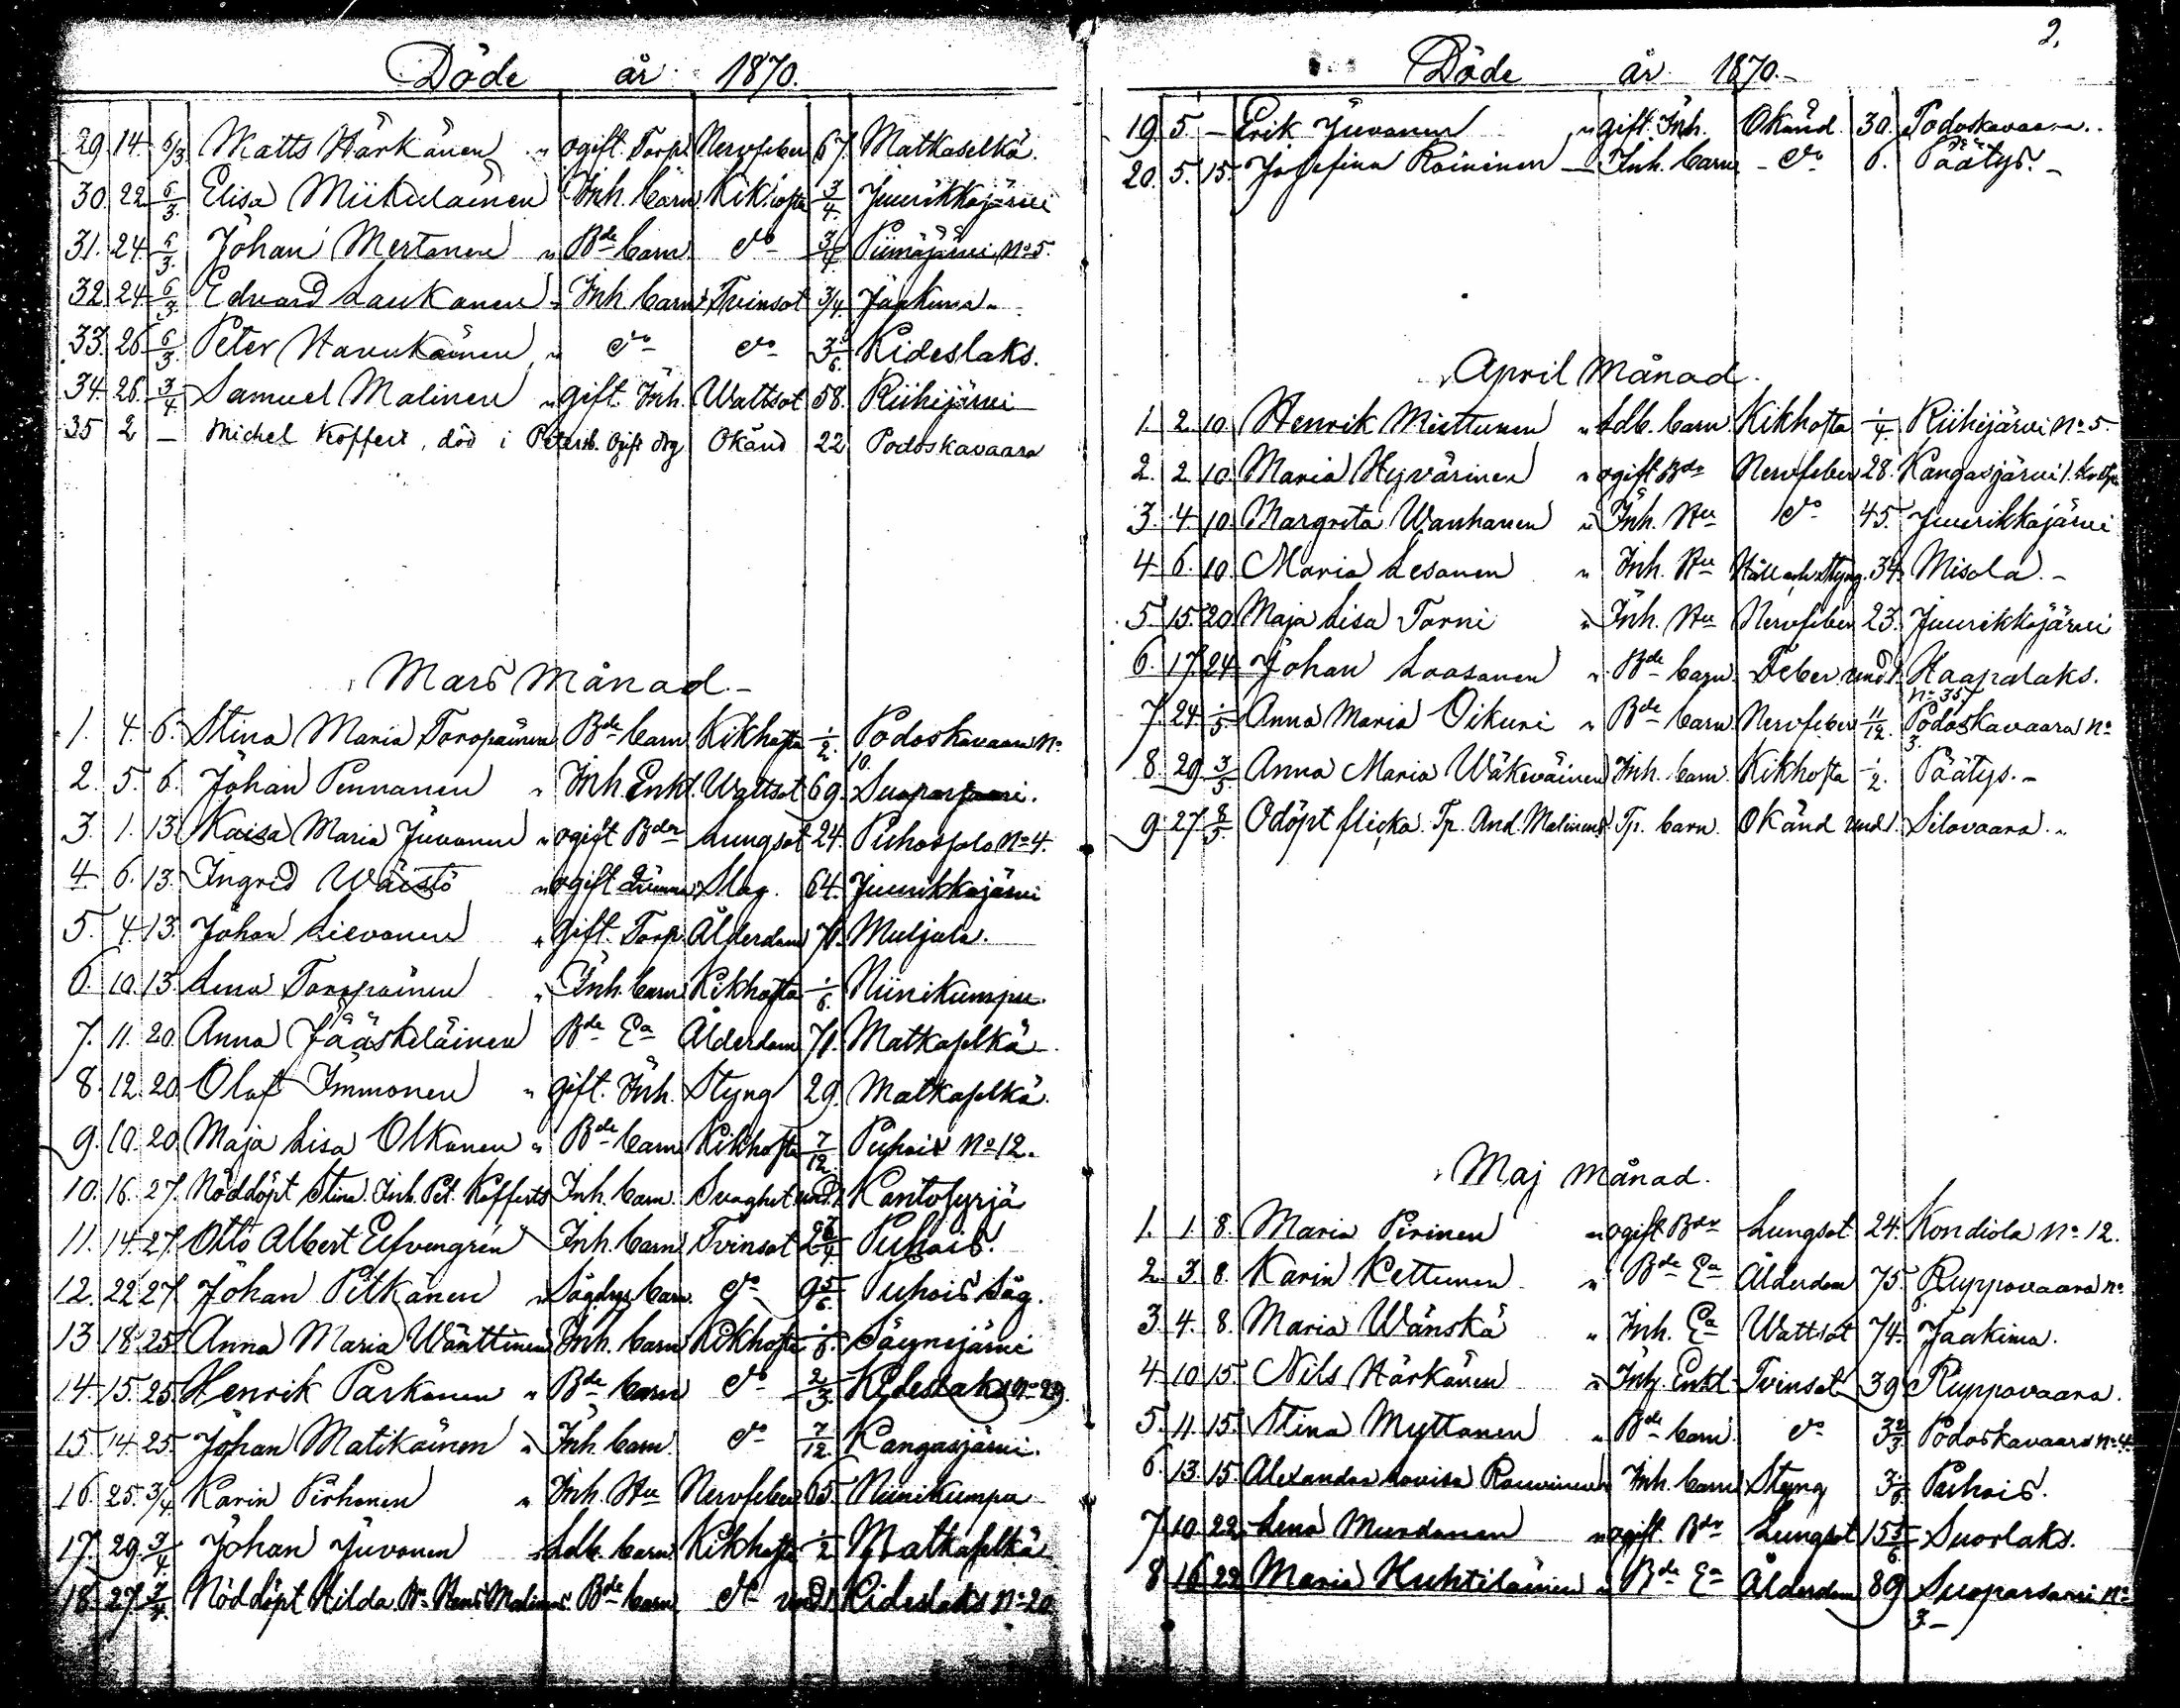 Döde år 1870.
29. 14. 6/3 Matts Härkönen " ogift. Torp. Nervfeber 67. Matkaselkä.
30. 22 6/3. Elisa Miikulainen Inh. barn. Kikhosta 3/4. Juurikkajärvi
31. 24. 6/3. Johan Mertanen " Bde barn do 3/4. Piimäjärvi, No 5.
32. 24. 6/3. Edvard Laukanen " Inh. barn Tvinsot 3/4. Jaakima.
33. 26 6/3. Peter Havukainen " do do 3 /6. Kideslaks.
34. 26. 3/4 Samuel Malinen " gift. Inh. Wattsot 58. Riihijärvi
35 2 — Michel Koffert, död i Petersb. Ogift drg Okänd 22 Podoskavaara
Mars Månad.-
1. 4. 6. Stina Maria Toropainen Bde barn Kikhosta 1/2. Podoskavaara No 10.
2. 5. 6. Johan Pennanen " Inh. Enkl. Wattsot 69. Suoparsaari.
3. 1. 13. Kaisa Maria Juvonen " ogift Bdr Lungsot 24. Puhospalo No 4.
4. 6. 13. Ingrid Wäistö " ogift Slag. 64. Juurikkajärvi
5. 4. 13. Johan Lievonen " gift. Torp. Ålderdom 71. Muljula.
6. 10. 13. Lena Toropainen " Inh. barn Kikhosta 1/6. Niinikumpu.
7. 11. 20. Anna Jääskeläinen Bde Ea Ålderdom 71. Matkaselkä.
8. 12. 20. Olof Immonen " gift. Inh. Styng 29. Matkaselkä.
9. 10. 20. Maja Lisa Olkonen " Bde barn Kikhosta 7/12. Puhois No 12.
10. 16. 27. Nöddöpt Stina. Inh. Pet. Kofferts Inh. barn. Svaghet und. 1. Kantosyrjä
11. 14. 27. Otto Albert Elfvengren Inh. barn Tvinsot 2 /4 Puhois.
12. 22 27. Johan Pitkänen " Sågdrg barn. do 9 5/6. Puhois Såg.
13 18. 25 Anna Maria Wänttinen Inh. barn Kikhosta 1/6. Säynejärvi
14. 15. 25 Henrik Parkonen " Bde barn do 2/3. Kideslaks No 29.
15. 14. 25. Johan Matikainen " Inh. barn. do 7/12. Kangasjärvi.
16. 25. 3/4 Karin Pirhonen " Inh. Hu Nervfeber 65. Niinikumpu
17. 29. 3/4. Johan Juvonen Ldb. barn. Kikhosta 1/2 Matkaselkä
18. 27. 3/4. Nöddöpt Hilda. Bn Henr. Malinens Bde barn do und 1. Kideslaks No 20
2.
Döde år 1870.-
19. 5. — Erik Juvonen " gift. Inh. Okänd. 30. Podoskavaara.
20. 5. 15. Josefina Roininen — Inh. barn - do 6. Päätys. -
April Månad.
1. 2. 10. Henrik Miettunen " Ldb. barn. Kikhosta 1/4. Riihijärvi No 5.
2. 2. 10. Maria Hyvärinen " ogift Bdr Nervfeber 28. Kangasjärvi 1.
3. 4. 10. Margreta Wanhanen " Inh. Hu do 45. Juurikkajärvi
4. 6. 10. Maria Lesonen " Inh. Hu Håll och Styng. 34. Misola. -
5. 15. 20. Maja Lisa Torni " Inh. Hu Nervfeber 23. Juurikkajärvi
6. 17. 24. Johan Laasonen " Bde barn. Feber. und 1. Haapalaks. No 35.
7. 24. 1/5. Anna Maria Oikuri " Bde barn Nervfeber 11/12. Podoskavaara No 3.
8. 29. 3/5. Anna Maria Wäkeväinen Inh. barn. Kikhosta 1/2. Päätys. -
9. 27. 8/5. Odöpt flicka. Tp. And. Malinens Tp. barn. Okänd und 1. Silovaara.
Maj Månad.
1. 1. 8. Maria Pirinen " ogift Bdr Lungsot 24. Kondiola No 12.
2. 3. 8. Karin Kettunen " Bde Ea Ålderdom 75. Ruppovaara No 6.
3. 4. 8. Maria Wänskä " Inh. Ea Wattsot 74. Jaakima.
4. 10. 15. Nils Härkönen " Inh. Enkl. Tvinsot 39 Ruppovaara.
5. 11. 15. Stina Myttonen " Bde barn. do 3 2/3 Podoskavaara No 4.
6. 13. 15. Alexandra Lovisa Rouvinen Inh. barn Styng 3 1/6 Puhois.
7. 10. 22. Lena Muodonen " ogift. Bdr Lungsot 15 5/6 Suorlaks.
8. 16. 22. Maria Huhtilainen " Bde Ea Ålderdom 89 Suoparsaari No 3.-